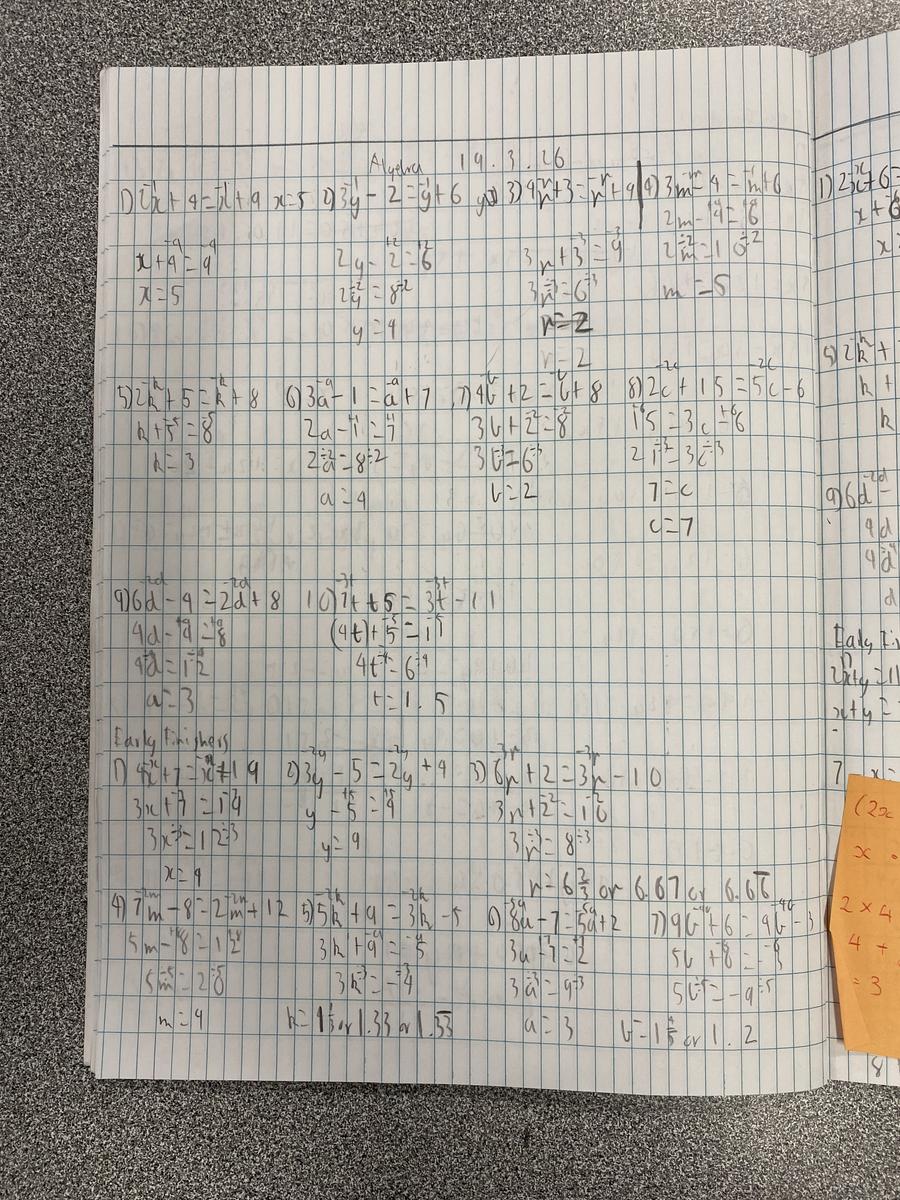 Algebra 19.3.26
1) 2x + 4 = x + 9 x = 5 2) 3y - 2 = y + 6 3) 4r + 3 = r + 9 4) 3m - 4 = m + 6
x + 4 = 9 2y - 2 = 6 3r + 3 = 9 2m - 4 = 6
x = 5 2y = 8 3r = 6 2m = 10
y = 4 r = 2 m = 5
r = 2
5) 2k + 5 = k + 8 6) 3a - 1 = a + 7 7) 4b + 2 = b + 8 8) 2c + 15 = 5c - 6
k + 5 = 8 2a - 1 = 7 3b + 2 = 8 15 = 3c - 6
k = 3 2a = 8 3b = 6 21 = 3c
a = 4 b = 2 7 = c
c = 7
9) 6d - 4 = 2d + 8 10) 7t + 5 = 3t - 11
4d - 4 = 8 (4t) + 5 = 11
4d = 12 4t = 6
a = 3 t = 1.5
Early Finishers
1) 4x + 7 = x + 19 2) 3y - 5 = 2y + 4 3) 6r + 2 = 3r - 10
3x + 7 = 19 y - 5 = 4 3r + 2 = 10
3x = 12 y = 9 3r = 8
x = 4 r = 6 2/3 or 6.67 or 6.6
4) 7m - 8 = 2m + 12 5) 5k + 9 = 3k - 5 6) 8a - 7 = 5a + 2 7) 9b + 6 = 4b - 3
5m - 8 = 12 3k + 9 = -5 3a - 7 = 2 5b + 6 = -3
5m = 20 3k = -4 3a = 9 5b = -9
m = 4 k = 1 1/3 or 1.33 or 1.33 a = 3 b = 1 4/5 or 1.2
1) 2x + 6 =
x + 6
5) 2k +
k +
k
9) 6d -
4d
4d
d
Early Fin
2x + y = 11
x + y =
7 x =
(2x
x
2 × 4
4 +
= 3
8